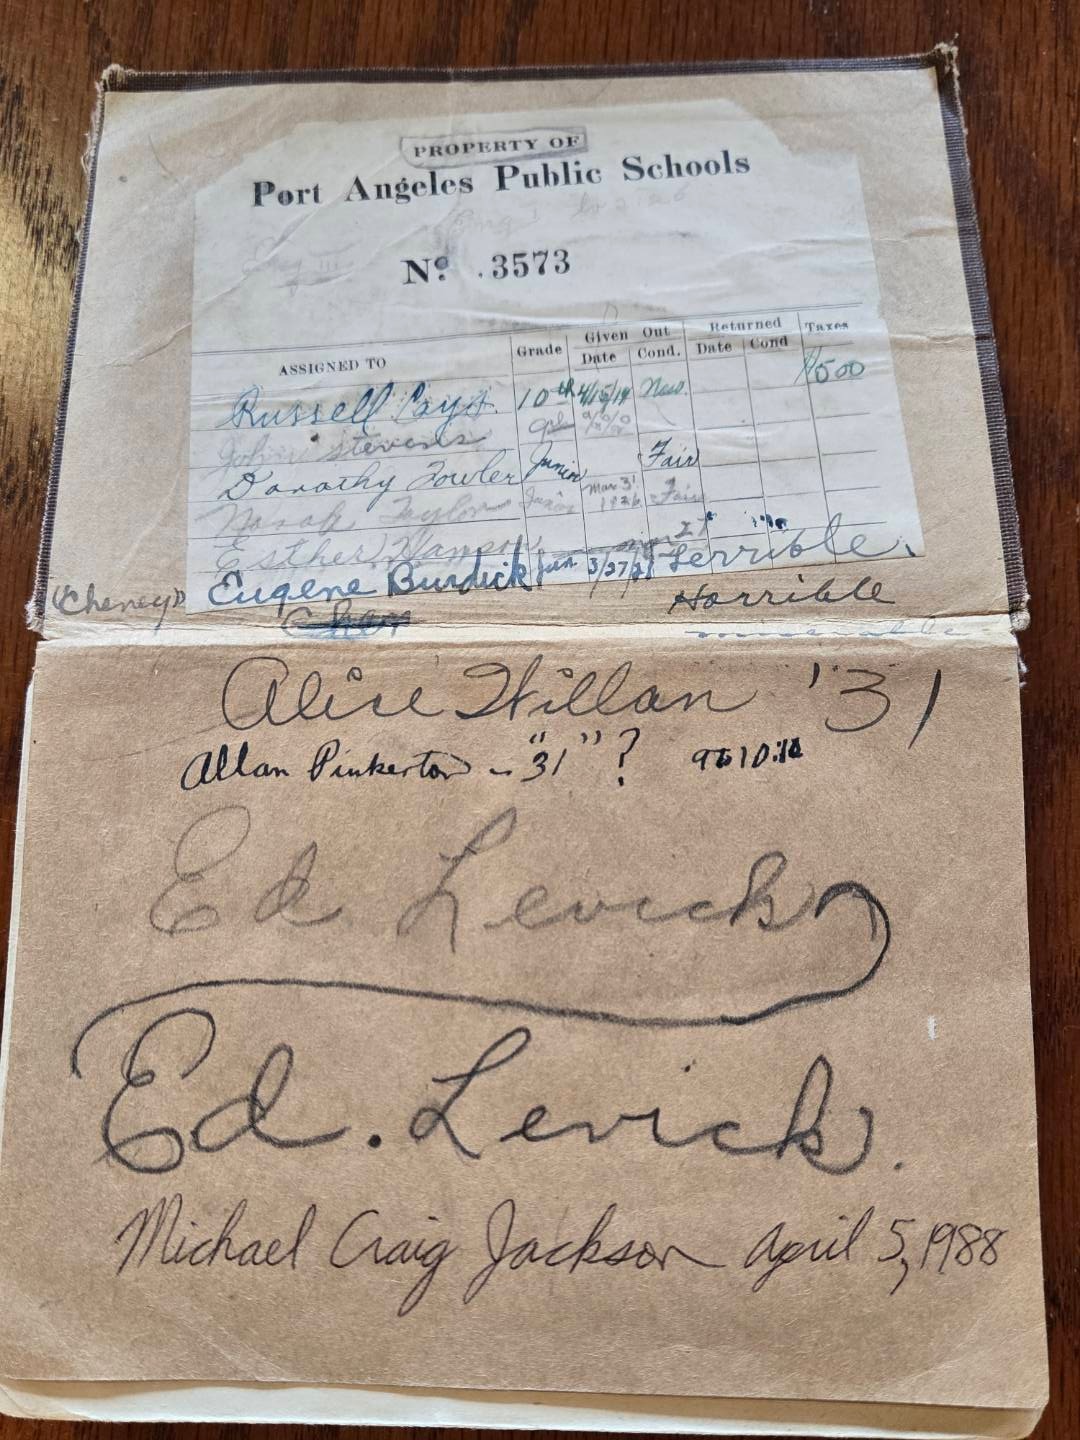 PROPERTY OF
Port Angeles Public Schools
Nº. 3573
ASSIGNED TO Grade Given Out Date Cond. Returned Date Cond Taxes
Russell 10th 4/15/19 New. $1500
John Stevens 9th
Dorothy Fowler Junior Fair
Taylor Junior Mar 31 1926 Fair
Esther Hanson Mar 27
(Cheney) Eugene Burdick Jun 3/27/27 Terrible.
Horrible
Alice Willan '31
Allan Pinkerton - "31" ?
Ed Levick
Ed. Levick.
Michael Craig Jackson April 5, 1988